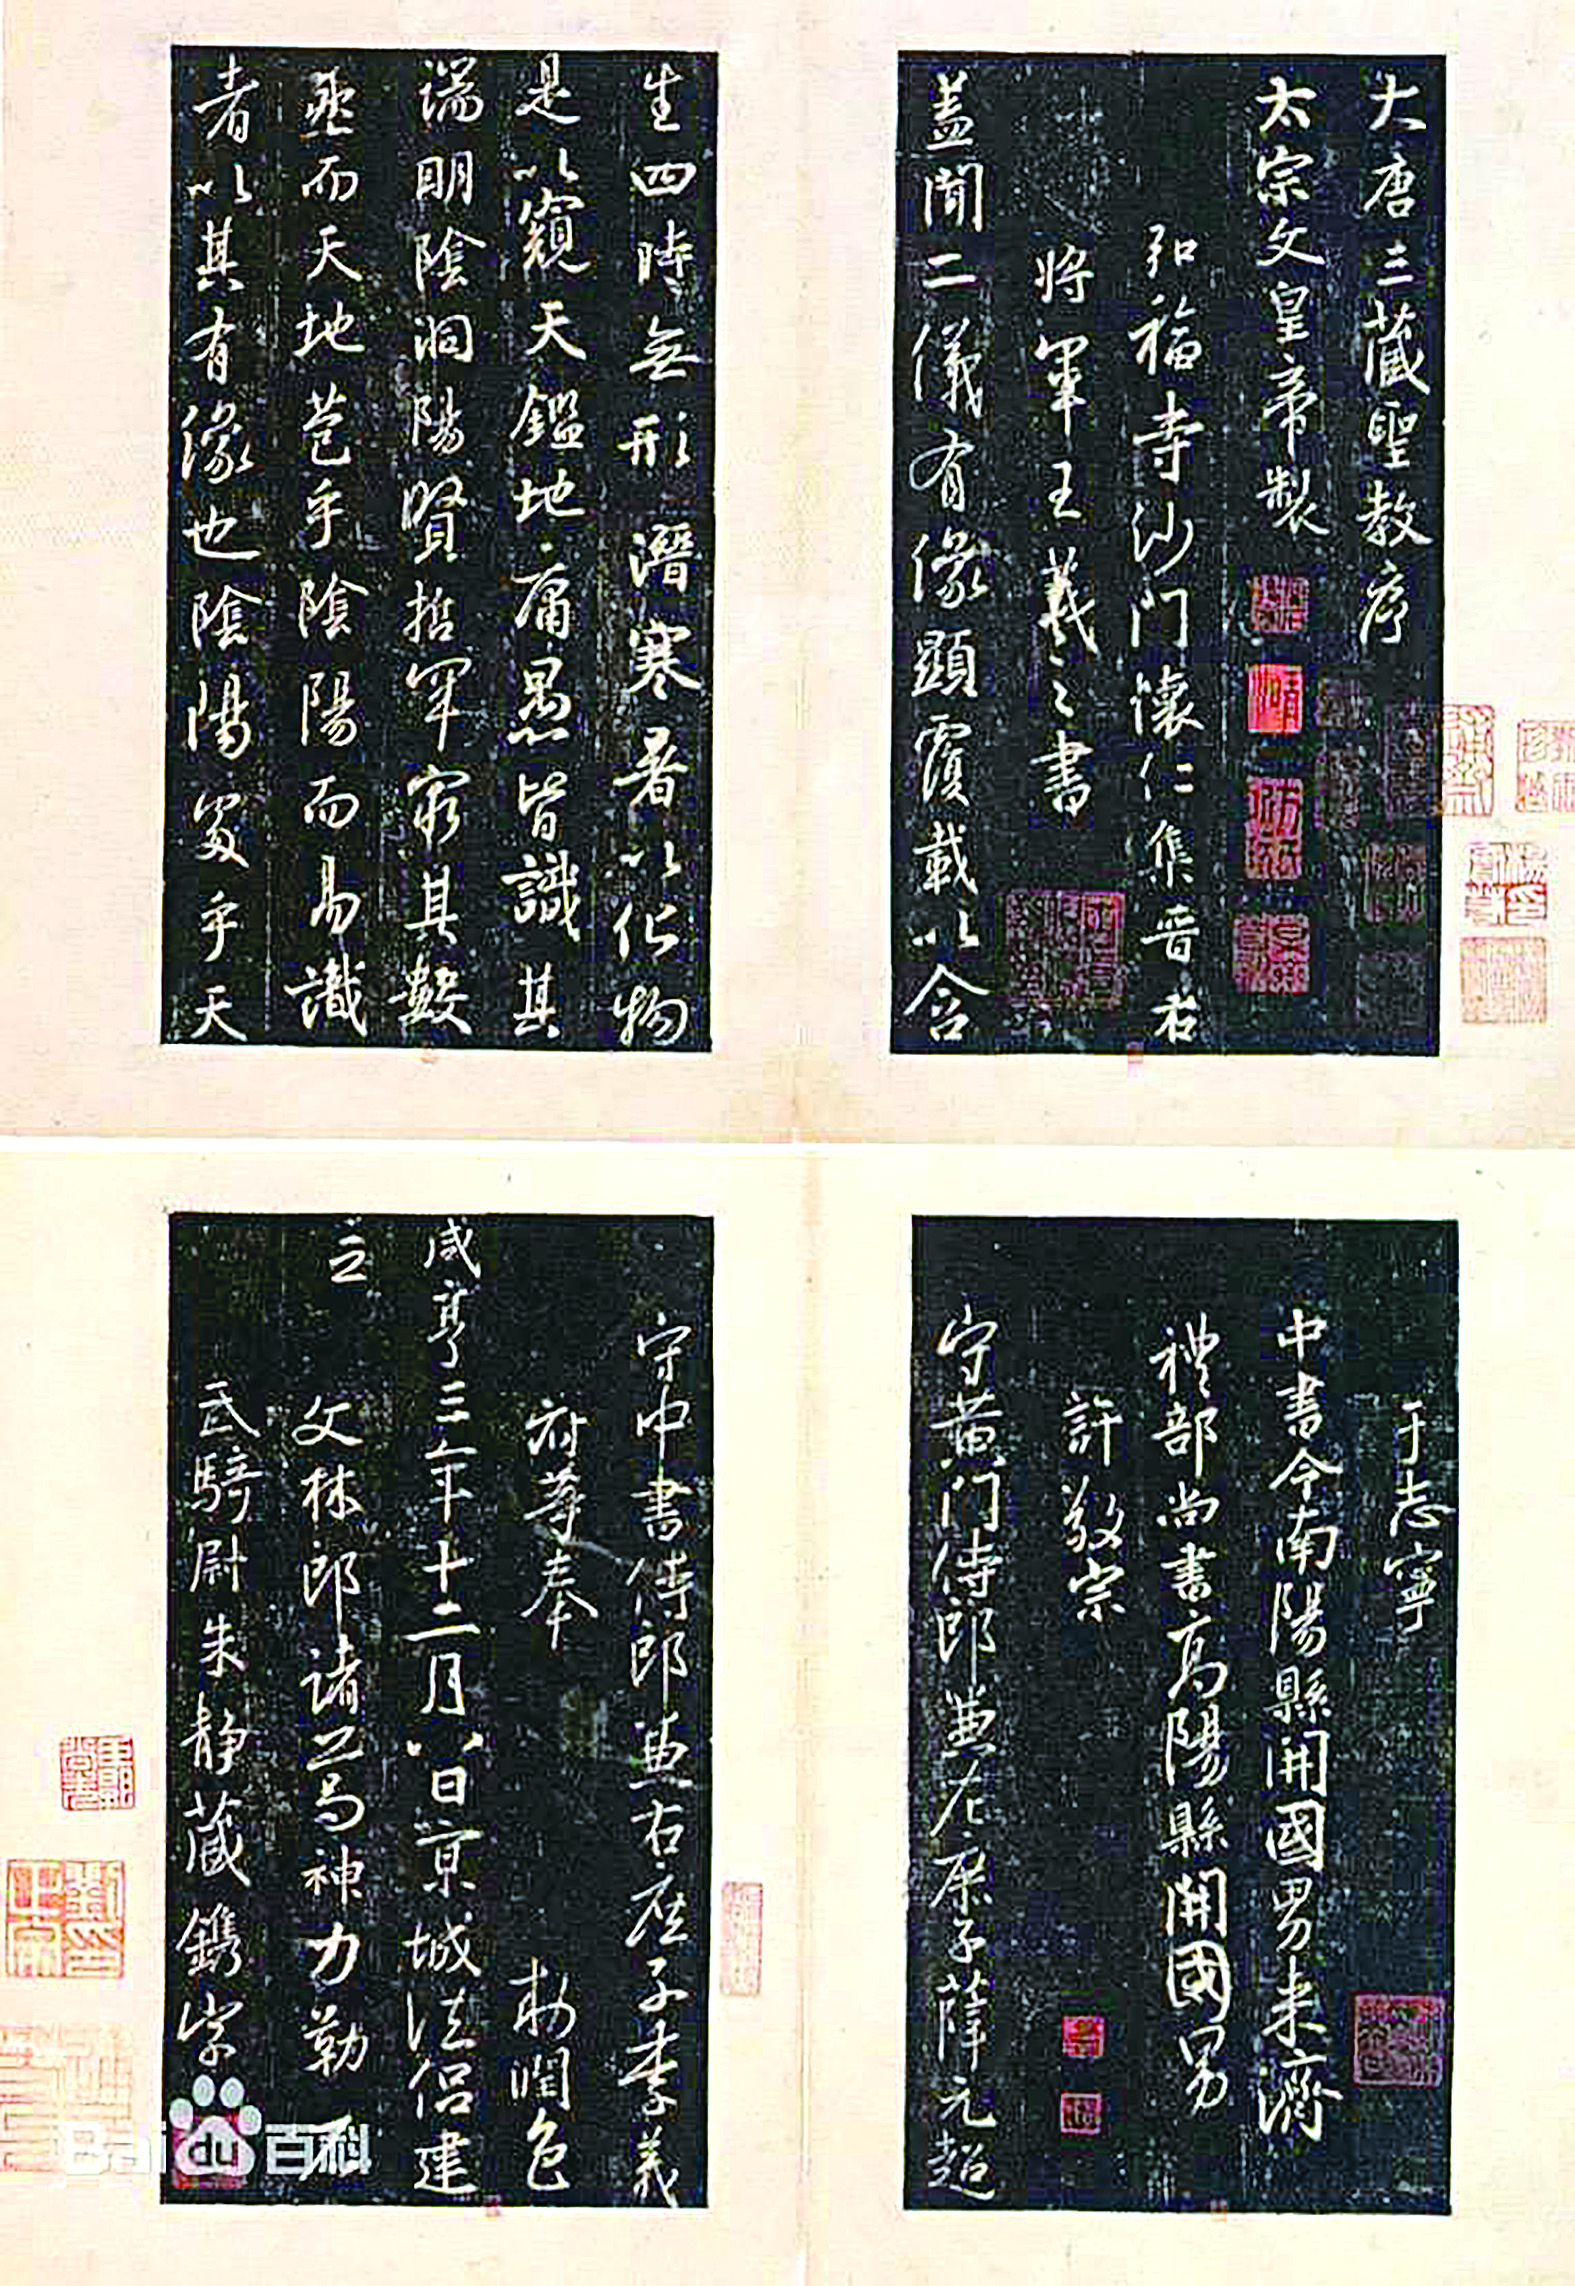 大唐三藏聖教序
太宗文皇帝製
弘福寺沙門懷仁集晉右
將軍王羲之書
蓋聞二儀有像顯覆載以含
生四時無形潛寒暑以化物
是以窺天鑑地庸愚皆識其
端明陰洞陽賢哲罕窮其數
然而天地苞乎陰陽而易識
者以其有像也陰陽處乎天
于志寧
中書令南陽縣開國男來濟
禮部尚書高陽縣開國男
許敬宗
守黃門侍郎兼左庶子薛元超
守中書侍郎兼右庶子李義
府等奉 敕潤色
咸亨三年十二月八日京城法侶建
立
文林郎諸葛神力勒石
武騎尉朱靜藏鐫字
Baidu百科